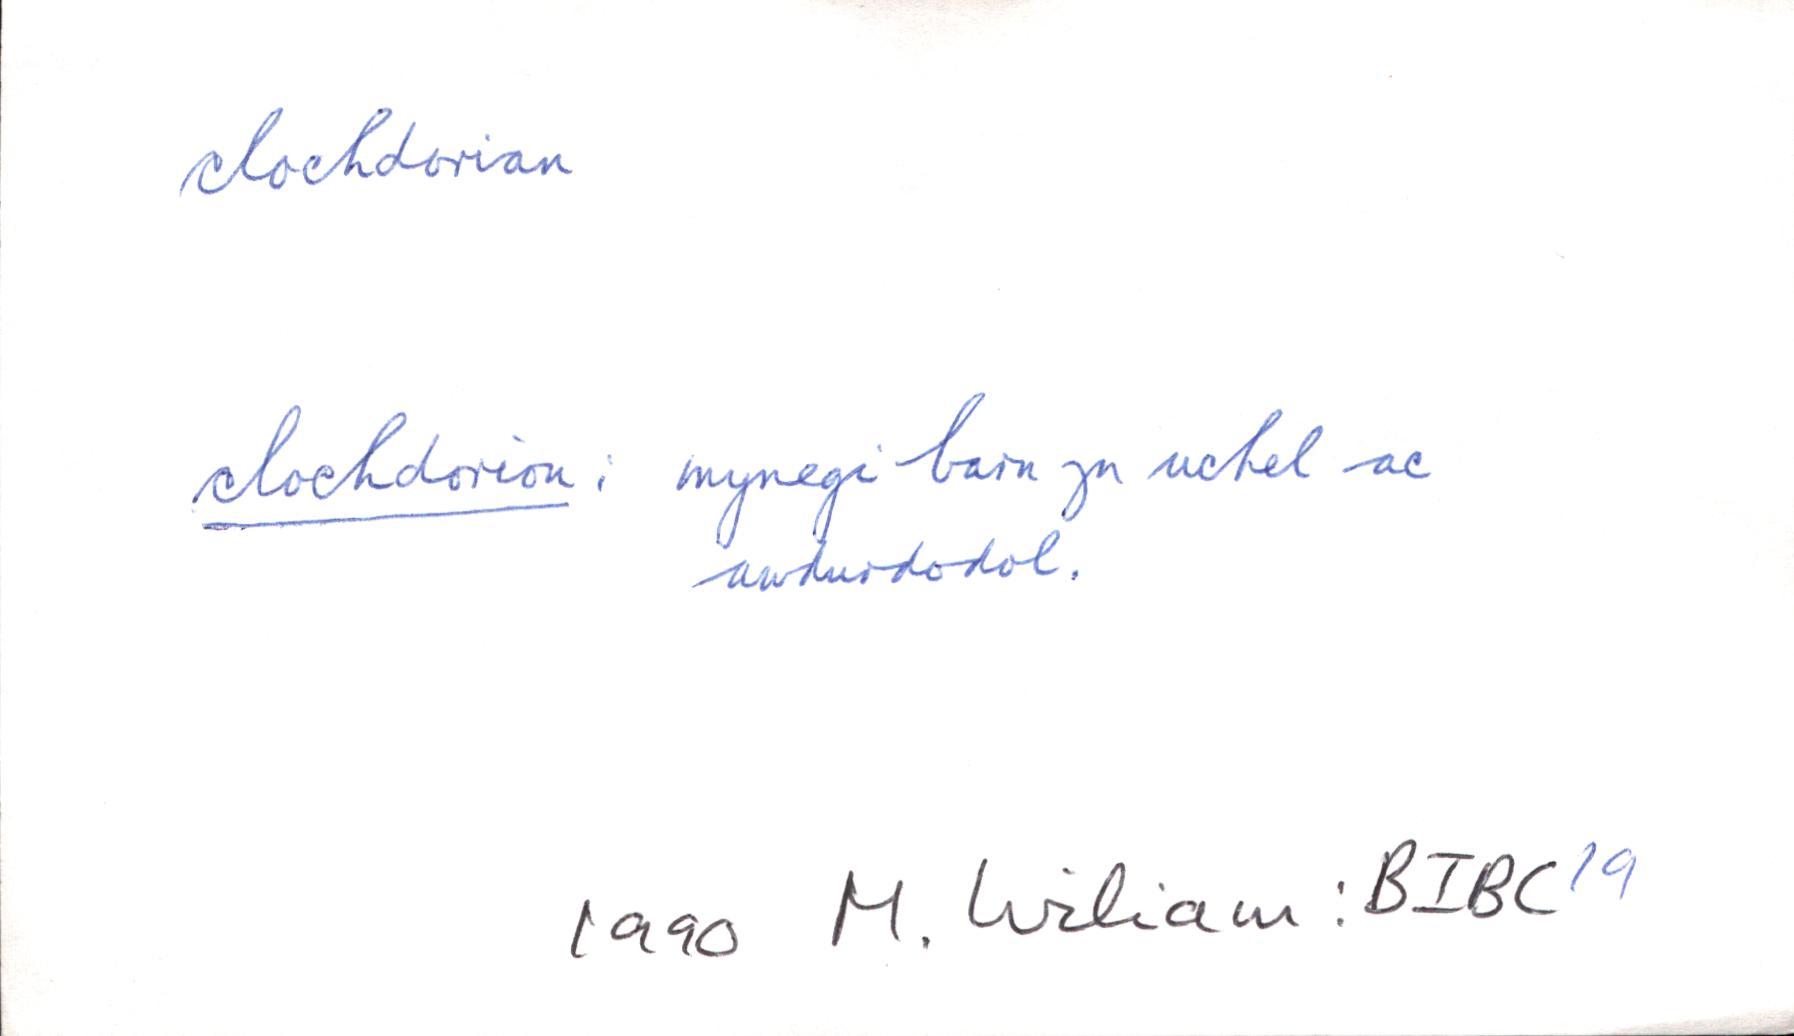 clochdorian
clochdorion: mynegi barn yn uchel ac
awdurdodol.
1990 M. Wiliam: BIBC 19